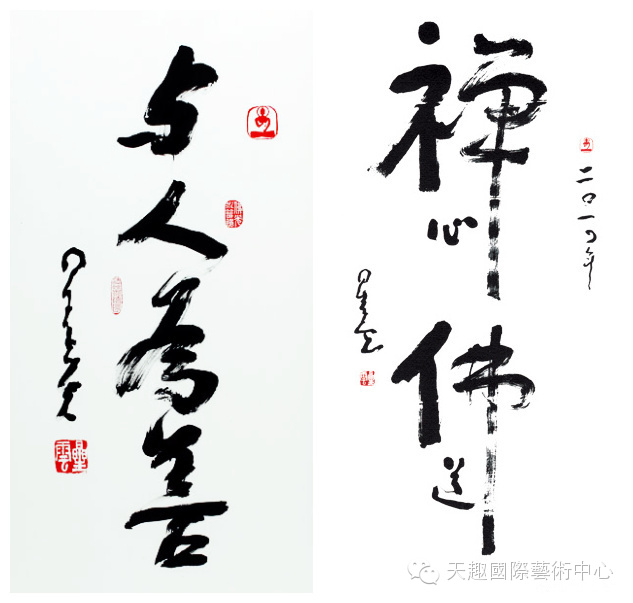 与人為善
星雲
禪心佛道
二〇一四年
星雲
天趣國際藝術中心